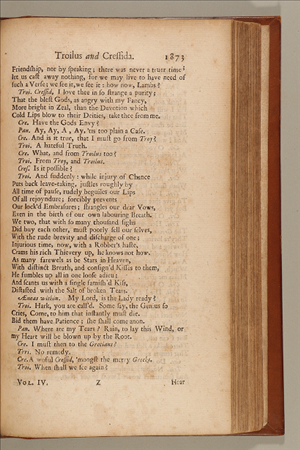 Troilus and Cressida. 1873
Friendship, nor by speaking; there was never a truer time!
let us cast away nothing, for we may live to have need of
such a Verse; we see it, we see it: how now, Lambs?
Troi. Cressid, I love thee in so strange a purity;
That the blest Gods, as angry with my Fancy,
More bright in Zeal, than the Devotion which
Cold Lips blow to their Deities, take thee from me.
Cre. Have the Gods Envy?
Pan. Ay, Ay, Ay, Ay, 'tis too plain a Case.
Cre. And is it true, that I must go from Troy?
Troi. A hateful Truth.
Cre. What, and from Troilus too?
Troi. From Troy, and Troilus.
Cres. Is it possible?
Troi. And suddenly: while injury of Chance
Puts back leave-taking, justles roughly by
All time of pause, rudely beguiles our Lips
Of all rejoyndure; forcibly prevents
Our lock'd Embrasures; strangles our dear Vows,
Even in the birth of our own labouring Breath.
We two, that with so many thousand sighs
Did buy each other, must poorly sell our selves,
With the rude brevity and discharge of one;
Injurious time, now, with a Robber's haste,
Crams his rich Thievery up, he knows not how.
As many farewels as be Stars in Heaven,
With distinct Breath, and consign'd Kisses to them,
He fumbles up all in one loose adieu;
And scants us with a single famish'd Kiss,
Distasted with the Salt of broken Tears.
Æneas within. My Lord, is the Lady ready?
Troi. Hark, you are call'd. Some say, the Genius so
Cries, Come, to him that instantly must die.
Bid them have Patience; she shall come anon.
Pan. Where are my Tears? Rain, to lay this Wind, or
my Heart will be blown up by the Root.
Cre. I must then to the Grecians?
Troi. No remedy.
Cre. A woful Cressid, 'mongst the merry Greeks.
Troi. When shall we see again?
VOL. IV. Z Hear